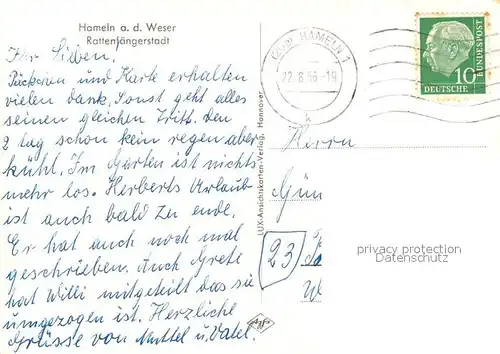 Hameln a. d. Weser
Rattenfängerstadt
Ihr Lieben.
Päckchen und Karte erhalten
vielen dank. Sonst geht alles
seinen gleichen Tritt. Den
2 tag schon kein regen aber
kühl. Im Garten ist nichts
mehr los. Herberts Urlaub
ist auch bald zu ende.
Er hat auch noch mal
geschrieben. Auch Grete
hat Willi mitgeteilt das sie
umgezogen ist. Herzliche
Grüsse von Muttel u. Vatel.
LUX-Ansichtskarten-Verlag, Hannover
HAMELN 1
22.8.56-19
k
10
DEUTSCHE
BUNDESPOST
Herrn
Gün
23
privacy protection
Datenschutz
Agfa